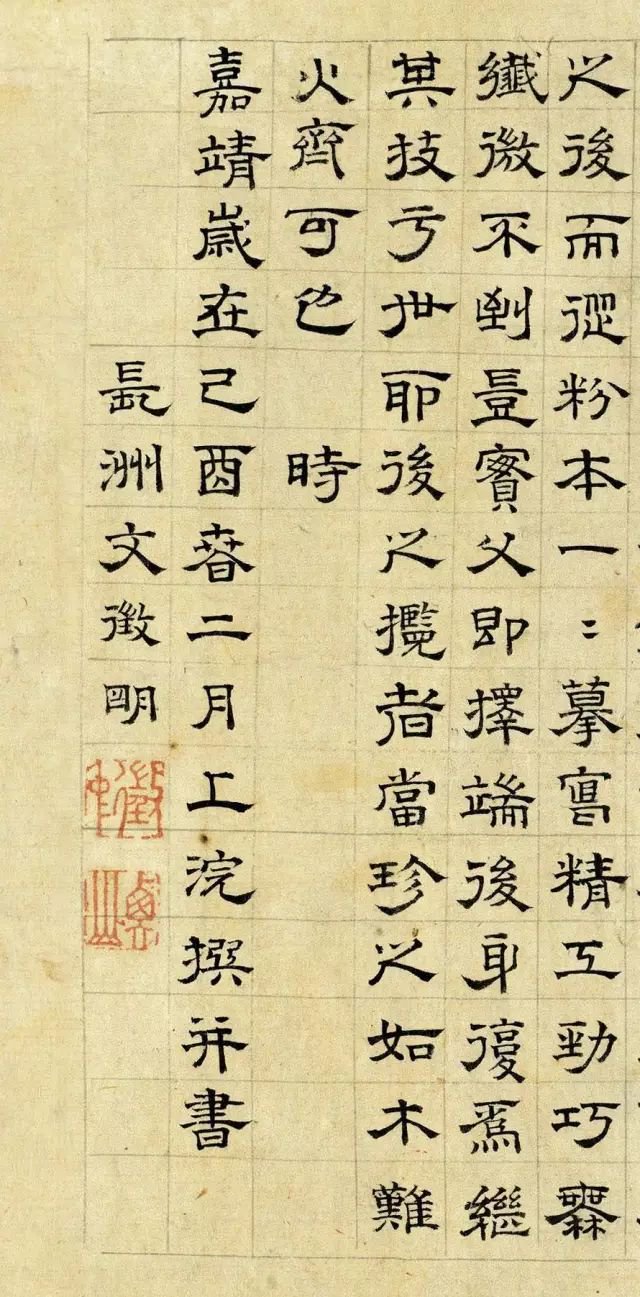 之後而從粉本一〻摹寫精工勁巧無
纖微不到豈實父即擇端後身復為繼
其技于世耶後之攬者當珍之如木難
火齊可也　時
嘉靖歲在己酉春二月上浣撰并書
長洲文徵明